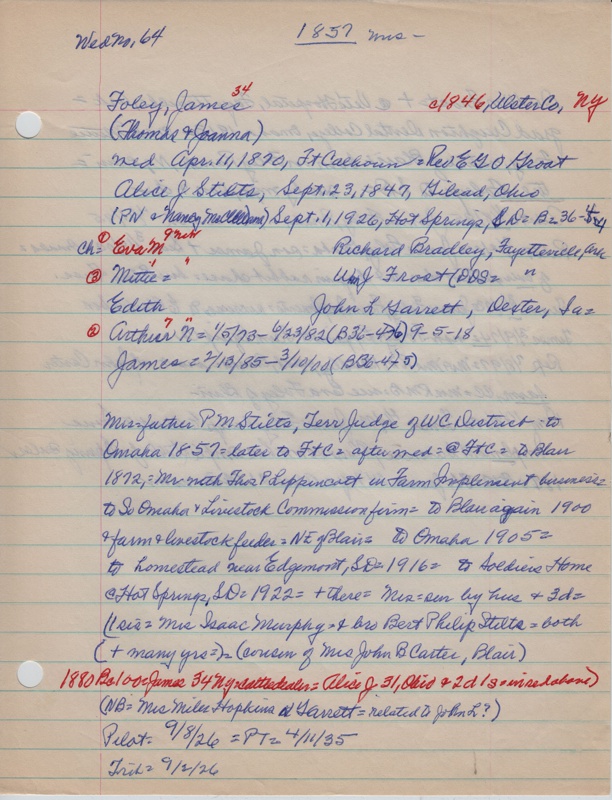 Wed No, 64 1857 Mrs -
Foley, James 34 c/1846, Ulster Co, NY
(Thomas & Joanna)
med Apr. 11, 1870, Ft Calhoun = Rev E G O Groat
Alice J Stilts, Sept. 23, 1847, Gilead, Ohio
(PN & Nancy ) Sept. 1, 1926, Hot Springs, SD = B = 36-4-
ch = ① Eva M 9 Richard Bradley, Fayetteville, Ark
③ Mittie = " J Frost (DDS = "
Edith John L Garrett, Dexter, Ia =
② Arthur "7" N = 1/5/73 - 6/23/82 (B36-4-76) 9-5-18
James = 2/13/85 - 3/10/00 (B36-4-75)
Mrs = father P M Stilts, Terr Judge of WC District - to
Omaha 1857 = later to FtC = after med = @ FtC = to Blair
1872, = Mr with Thos P Lippincott in Farm Implement business =
to So Omaha & Livestock Commission firm = to Blair again 1900
& farm & livestock feeder = NE of Blair = to Omaha 1905 =
to homestead near Edgemont, SD = 1916 = to Soldiers Home
@ Hot Springs, SD = 1922 = + there = Mrs = sur by hus & 3d =
(1 sis = Mrs Isaac Murphy = & bro Bert Philip Stilts = both
(+ many yrs =) = (cousin of Mrs John B Carter, Blair)
1880 Bs 100 = James 34 Ny = cattledealer = Alice J. 31, Ohio & 2d 1s = in red above)
(NB = Mrs Miles Hopkins N Garrett = related to John L?)
Pilot = 9/8/26 = PT = 4/11/35
Trib = 9/2/26